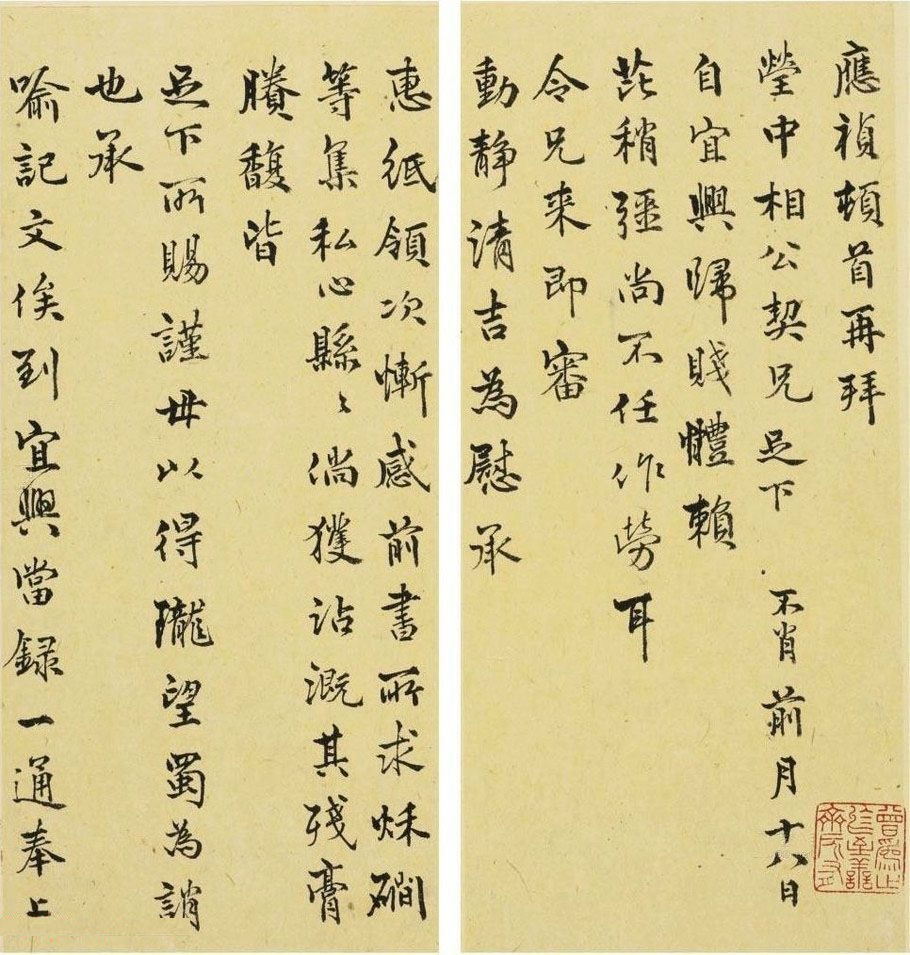 應禎頓首再拜
瑩中相公契兄足下 不肖前月十八日
自宜興歸賤體賴
芘稍彊尚不任作勞耳
令兄来即審
動静清吉為慰承
惠紙領次慚感前書所求穌磵
等集私心縣〻倘獲沾溉其殘膏
賸馥皆
足下所賜謹毋以得瓏望蜀為誚
也承
喻記文俟到宜興當録一通奉上